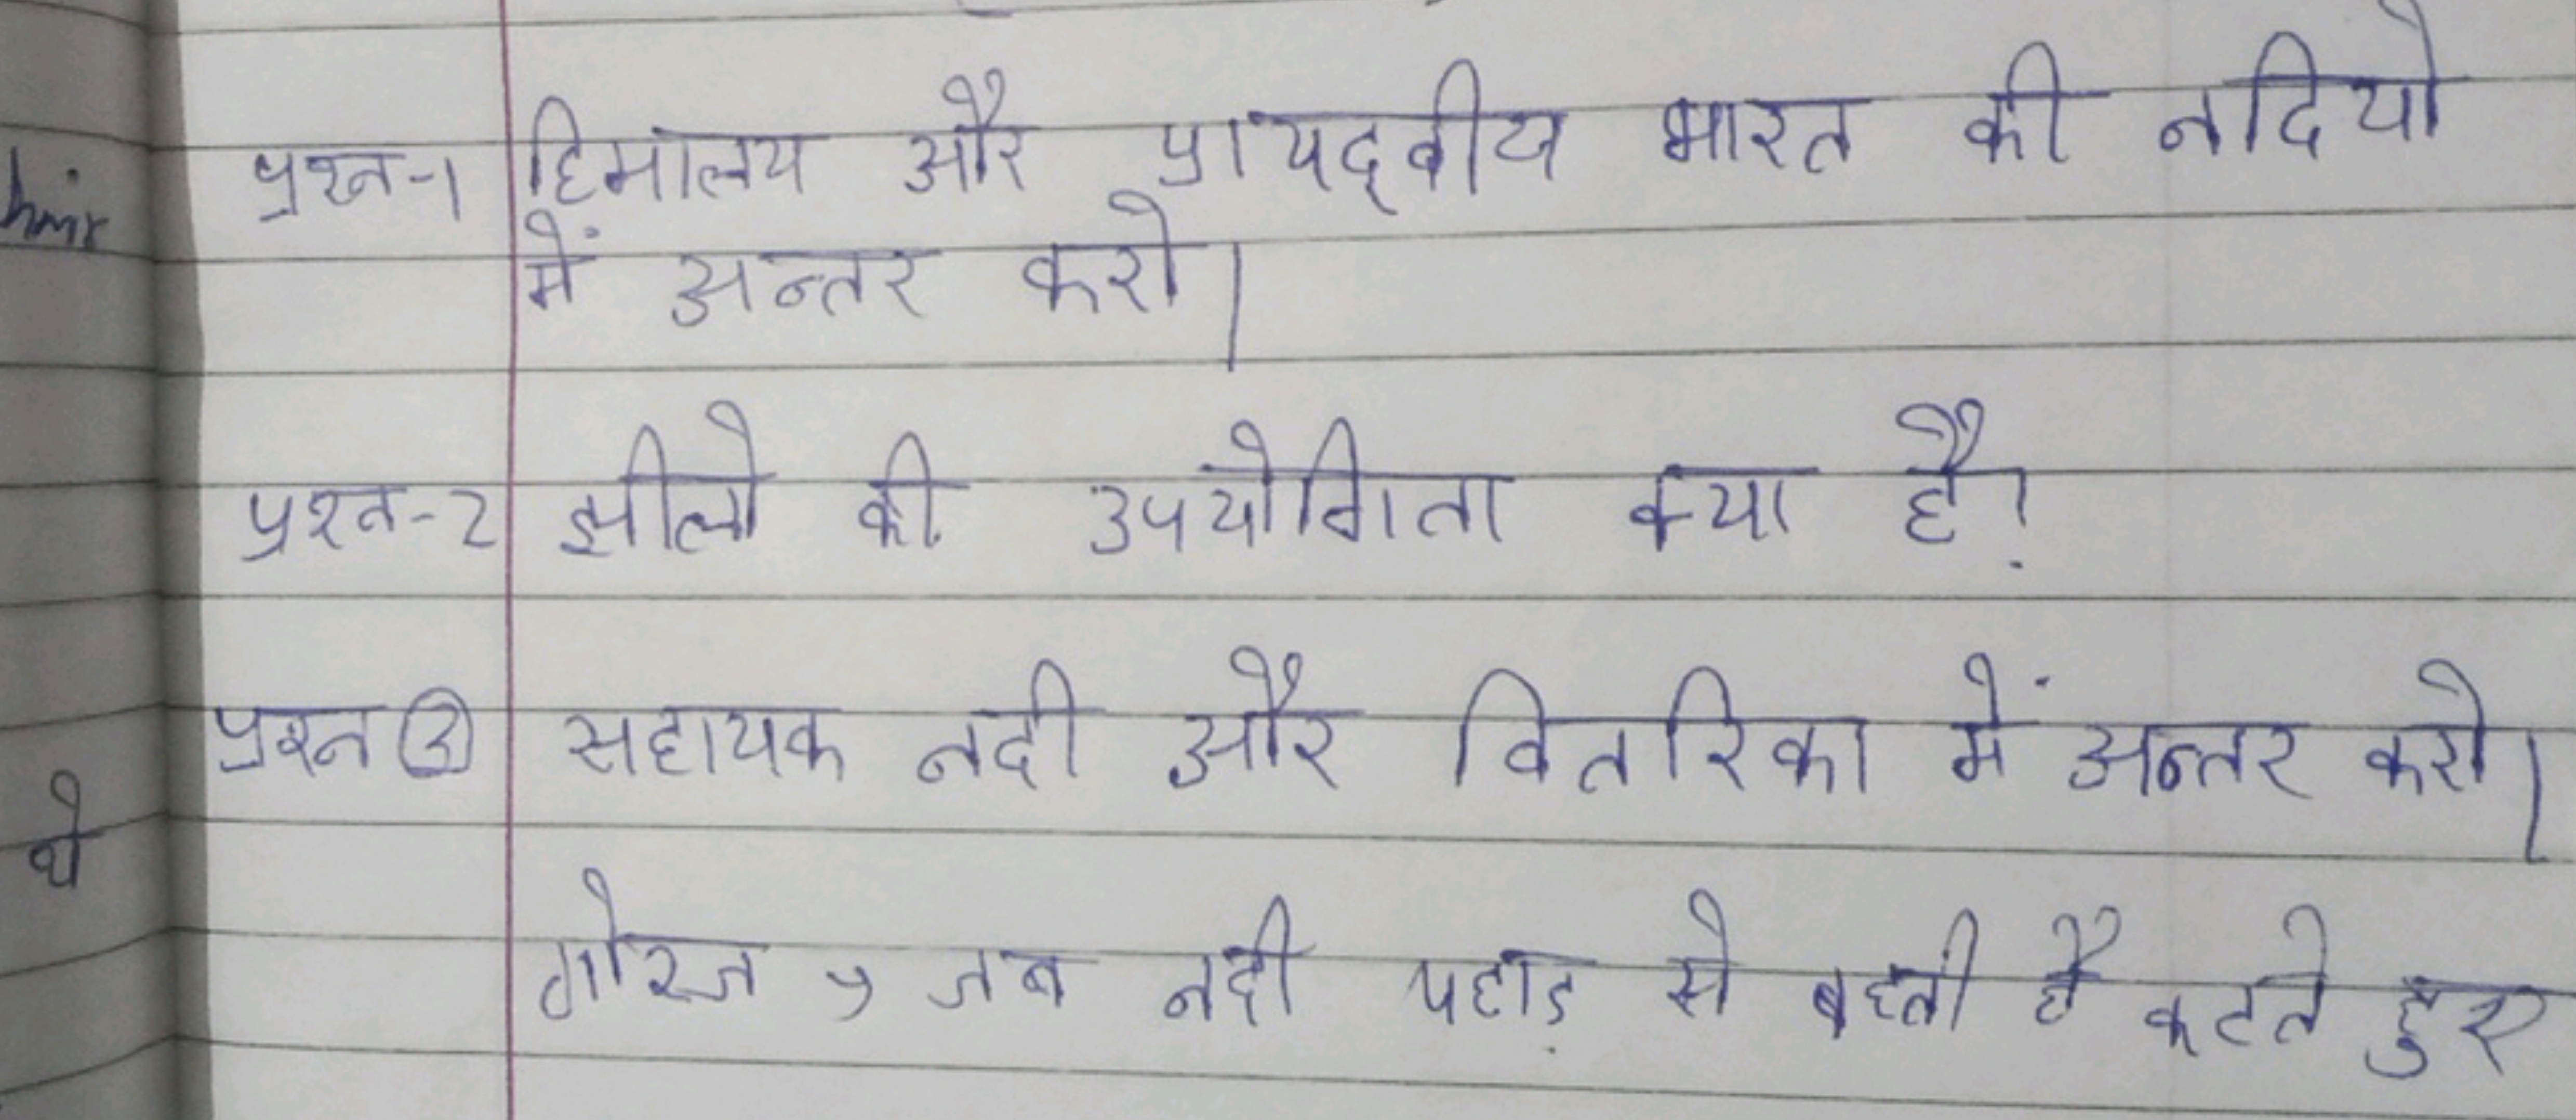 प्रश्न-1 हिमालय और प्रायद्वीय भारत की नदियो
में अन्तर करो।
प्रश्न-2 झीलो की उपयोगिता क्या है?
प्रश्न ③ सहायक नदी और वितरिका में अन्तर करो।
थे
गोरज → जब नदी पहाड़ से बहती है कटते हुए